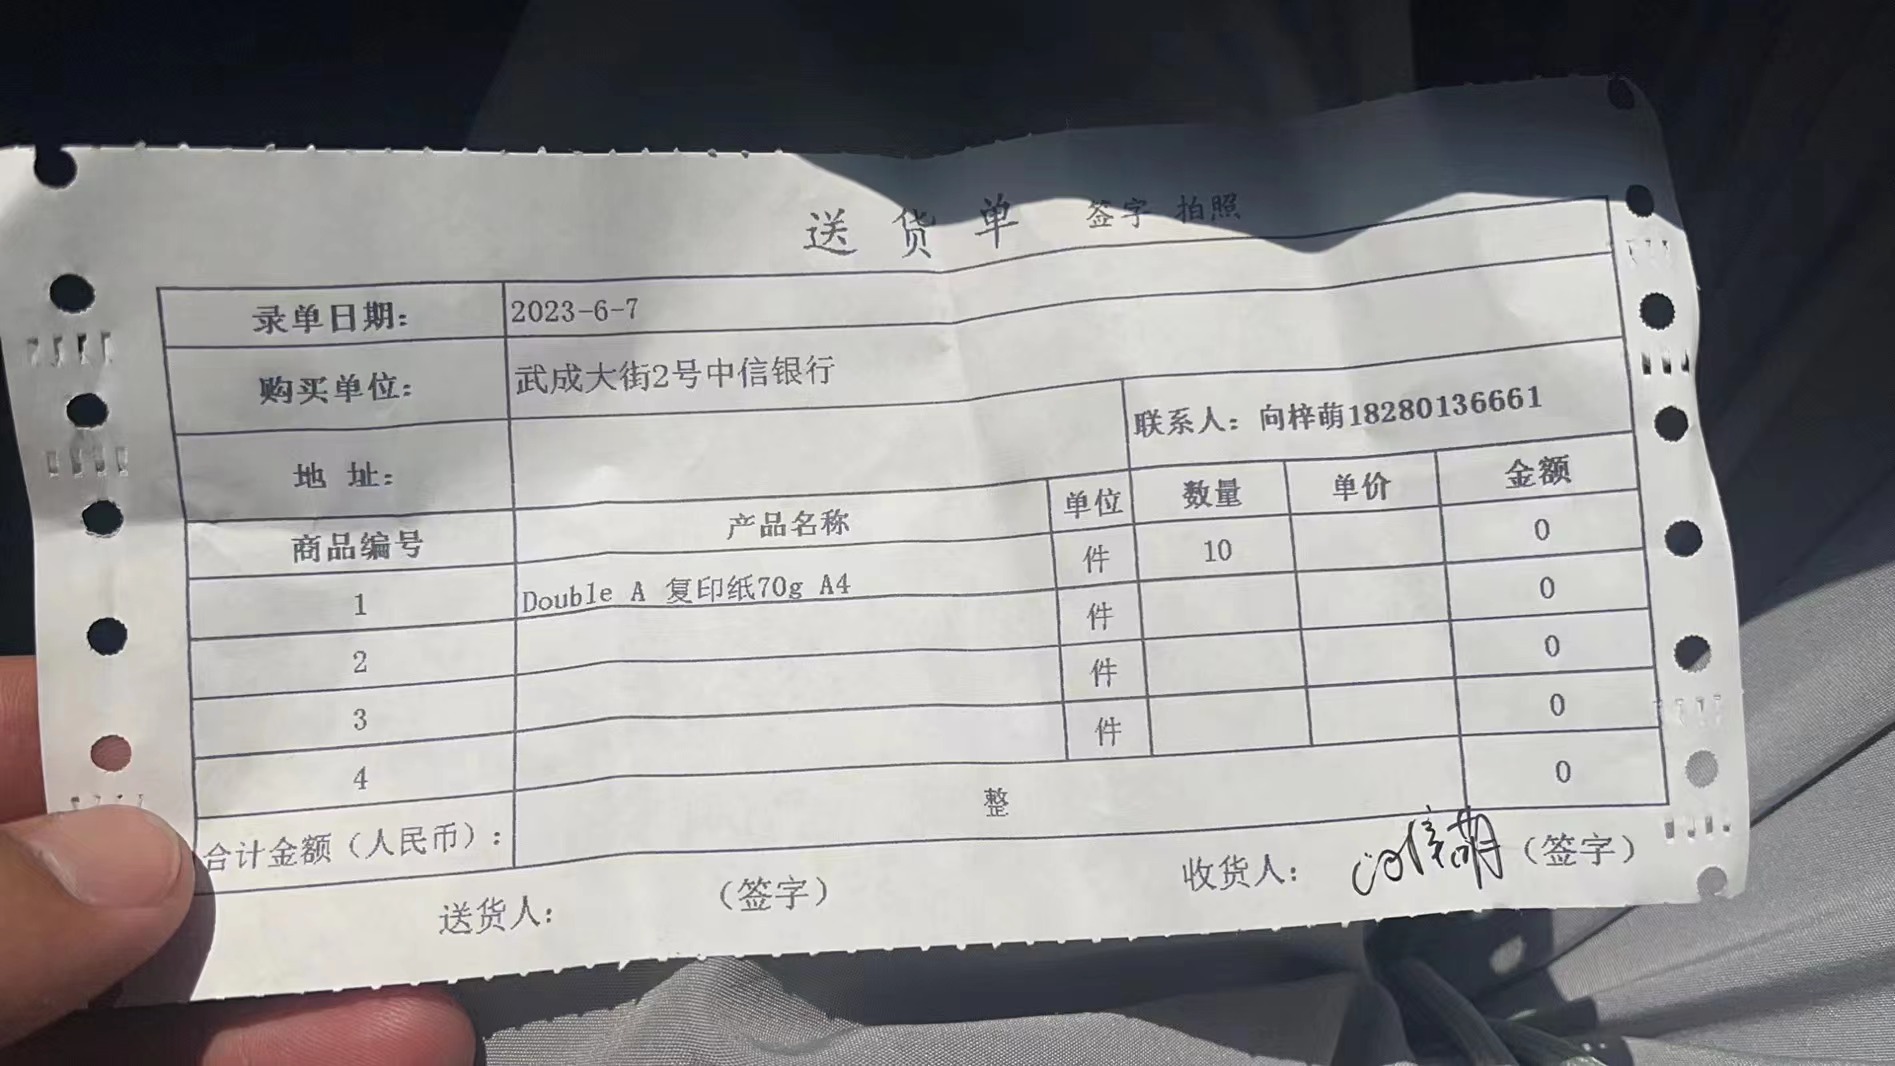 送 货 单 签字 拍照
录单日期: 2023-6-7
购买单位: 武成大街2号中信银行
地 址: 联系人: 向梓萌18280136661
商品编号 产品名称 单位 数量 单价 金额
1 Double A 复印纸70g A4 件 10 0
2 件 0
3 件 0
4 件 0
合计金额（人民币）: 整 0
送货人: （签字） 收货人: （签字）